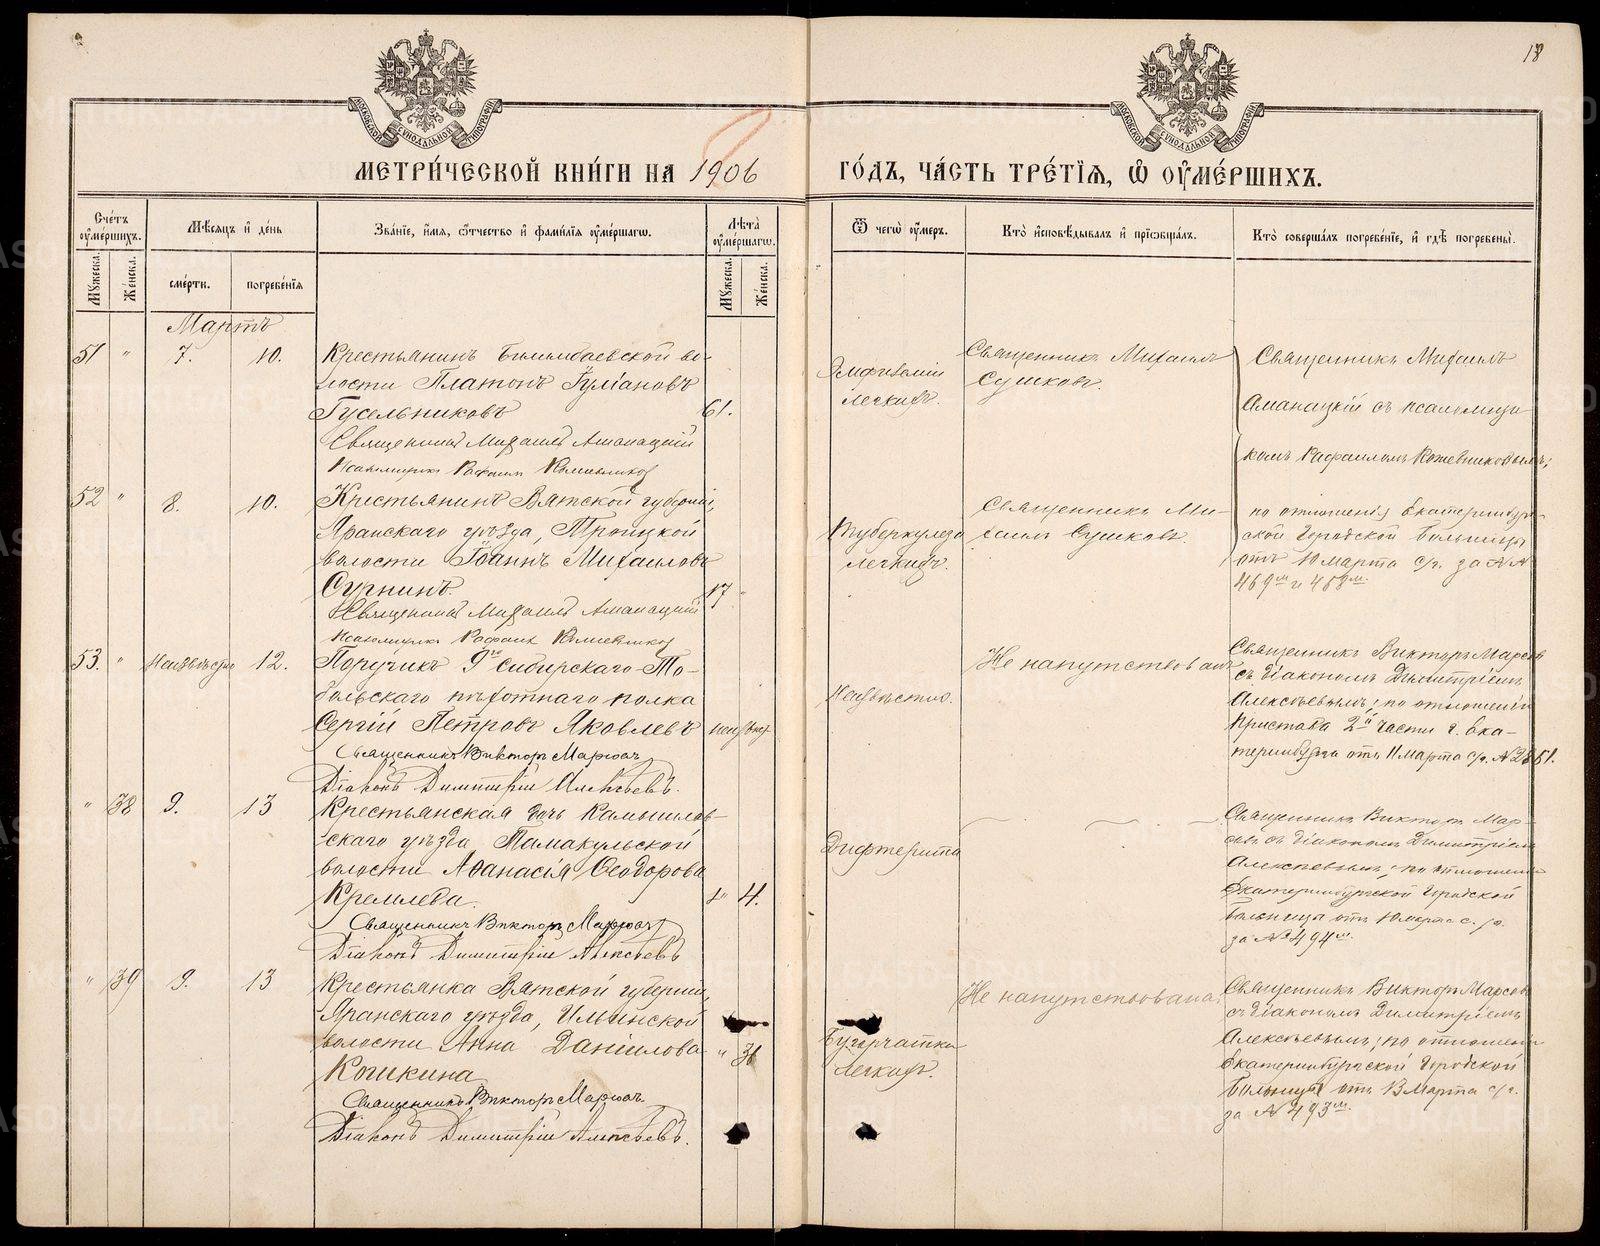 18
МОСКОВСКОЙ СѴНОДАЛЬНОЙ ТИПОГРАФІИ
МОСКОВСКОЙ СѴНОДАЛЬНОЙ ТИПОГРАФІИ
МЕТРИ́ЧЕСКОЙ КНИ́ГИ НА 1906
ГО́ДЪ, ЧА́СТЬ ТРЕ́ТЇѦ, Ѡ҆ ОУ҆МЕ́РШИХЪ.
Сче́тъ оу҆ме́ршихъ.
Мꙋжеска.
Же́нска.
Мѣ́сяцъ и҆ де́нь
сме́рти.
погребе́нїѧ
Зва́нїе, и҆́мѧ, ѻ҆́тчество и҆ фами́лїѧ оу҆ме́ршагѡ.
Лѣ́та оу҆ме́ршагѡ.
Мꙋжеска.
Же́нска.
Ѿ чегѡ̀ оу҆́меръ.
Кто̀ и҆сповѣ́дывалъ и҆ прїѡбща́лъ.
Кто̀ соверша́лъ погребе́нїе, и҆ гдѣ̀ погребены̀.
Мартъ
51 " 7. 10.
Крестьянинъ Билимбаевской во-
лости Платонъ Іуліановъ
Гусельниковъ 61.
Священникъ Михаилъ Аманацкій
Псаломщикъ Рафаилъ Кожевниковъ
Эмфиземіи
легкихъ.
Священникъ Михаилъ
Сушковъ.
Священникъ Михаилъ
Аманацкій съ псаломщи-
комъ Рафаиломъ Кожевниковымъ;
52 " 8. 10.
Крестьянинъ Вятской губерніи,
Яранскаго уѣзда, Троицкой
волости Іоаннъ Михаиловъ
Суркинъ. 17 "
Священникъ Михаилъ Аманацкій
Псаломщикъ Рафаилъ Кожевниковъ
Туберкулеза
легкихъ.
Священникъ Ми-
хаилъ Сушковъ.
по отношенію Екатеринбург-
ской Городской Больницы
отъ 10 марта с/г. за №№
469м и 468м.
53. " Неизвѣстно 12.
Поручикъ 9го Сибирскаго То-
больскаго пѣхотнаго полка
Сергій Петровъ Яковлевъ
Священникъ Викторъ Марсовъ
Діаконъ Димитрій Алексѣевъ.
Неизвѣстно.
Не напутствованъ
Священникъ Викторъ Марсовъ
съ діакономъ Димитріемъ
Алексѣевымъ; по отношенію
Пристава 2й части г. Ека-
теринбурга отъ 11 марта с/г. № 2861.
" 38 9. 13
Крестьянская дочь Камышлов-
скаго уѣзда Тамакульской
волости Аѳанасія Ѳеодорова
Кремлева. " 4.
Священникъ Викторъ Марсовъ
Діаконъ Димитрій Алексѣевъ
Дифтерита
Священникъ Викторъ Мар-
совъ съ діакономъ Димитріемъ
Алексѣевымъ; по отношенію
Екатеринбургской Городской
Больницы отъ 10 марта с. г.
за № 494м.
" 39 9. 13
Крестьянка Вятской губерніи,
Яранскаго уѣзда, Ильинской
волости Анна Даніилова
Кошкина
Священникъ Викторъ Марсовъ.
Діаконъ Димитрій Алексѣевъ.
Бугорчатки
легкихъ.
Не напутствована.
Священникъ Викторъ Марсовъ
съ діакономъ Димитріемъ
Алексѣевымъ; по отношенію
Екатеринбургской Городской
Больницы отъ Марта с/г.
за № 493м.